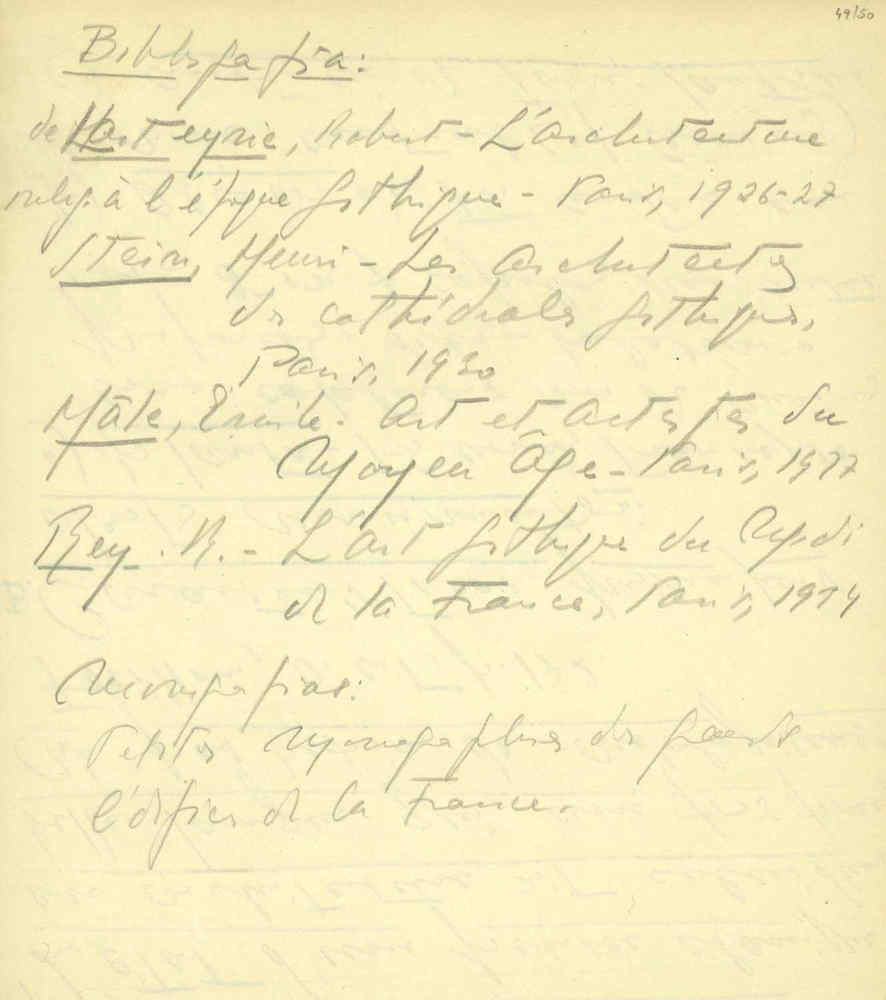 49/50
Bibliografia:
de Lasteyrie, Robert - L'architecture
relig. à l'époque gothique - Paris, 1926-27
Stein, Henri - Les architectes
des cathédrales gothiques,
Paris, 1930
Mâle, Émile. Art et artistes du
Moyen Âge - Paris, 1927
Rey. R. - L'art gothique du Midi
de la France, Paris, 1934
Monografias:
Petites Monographies des grands
édifices de la France.